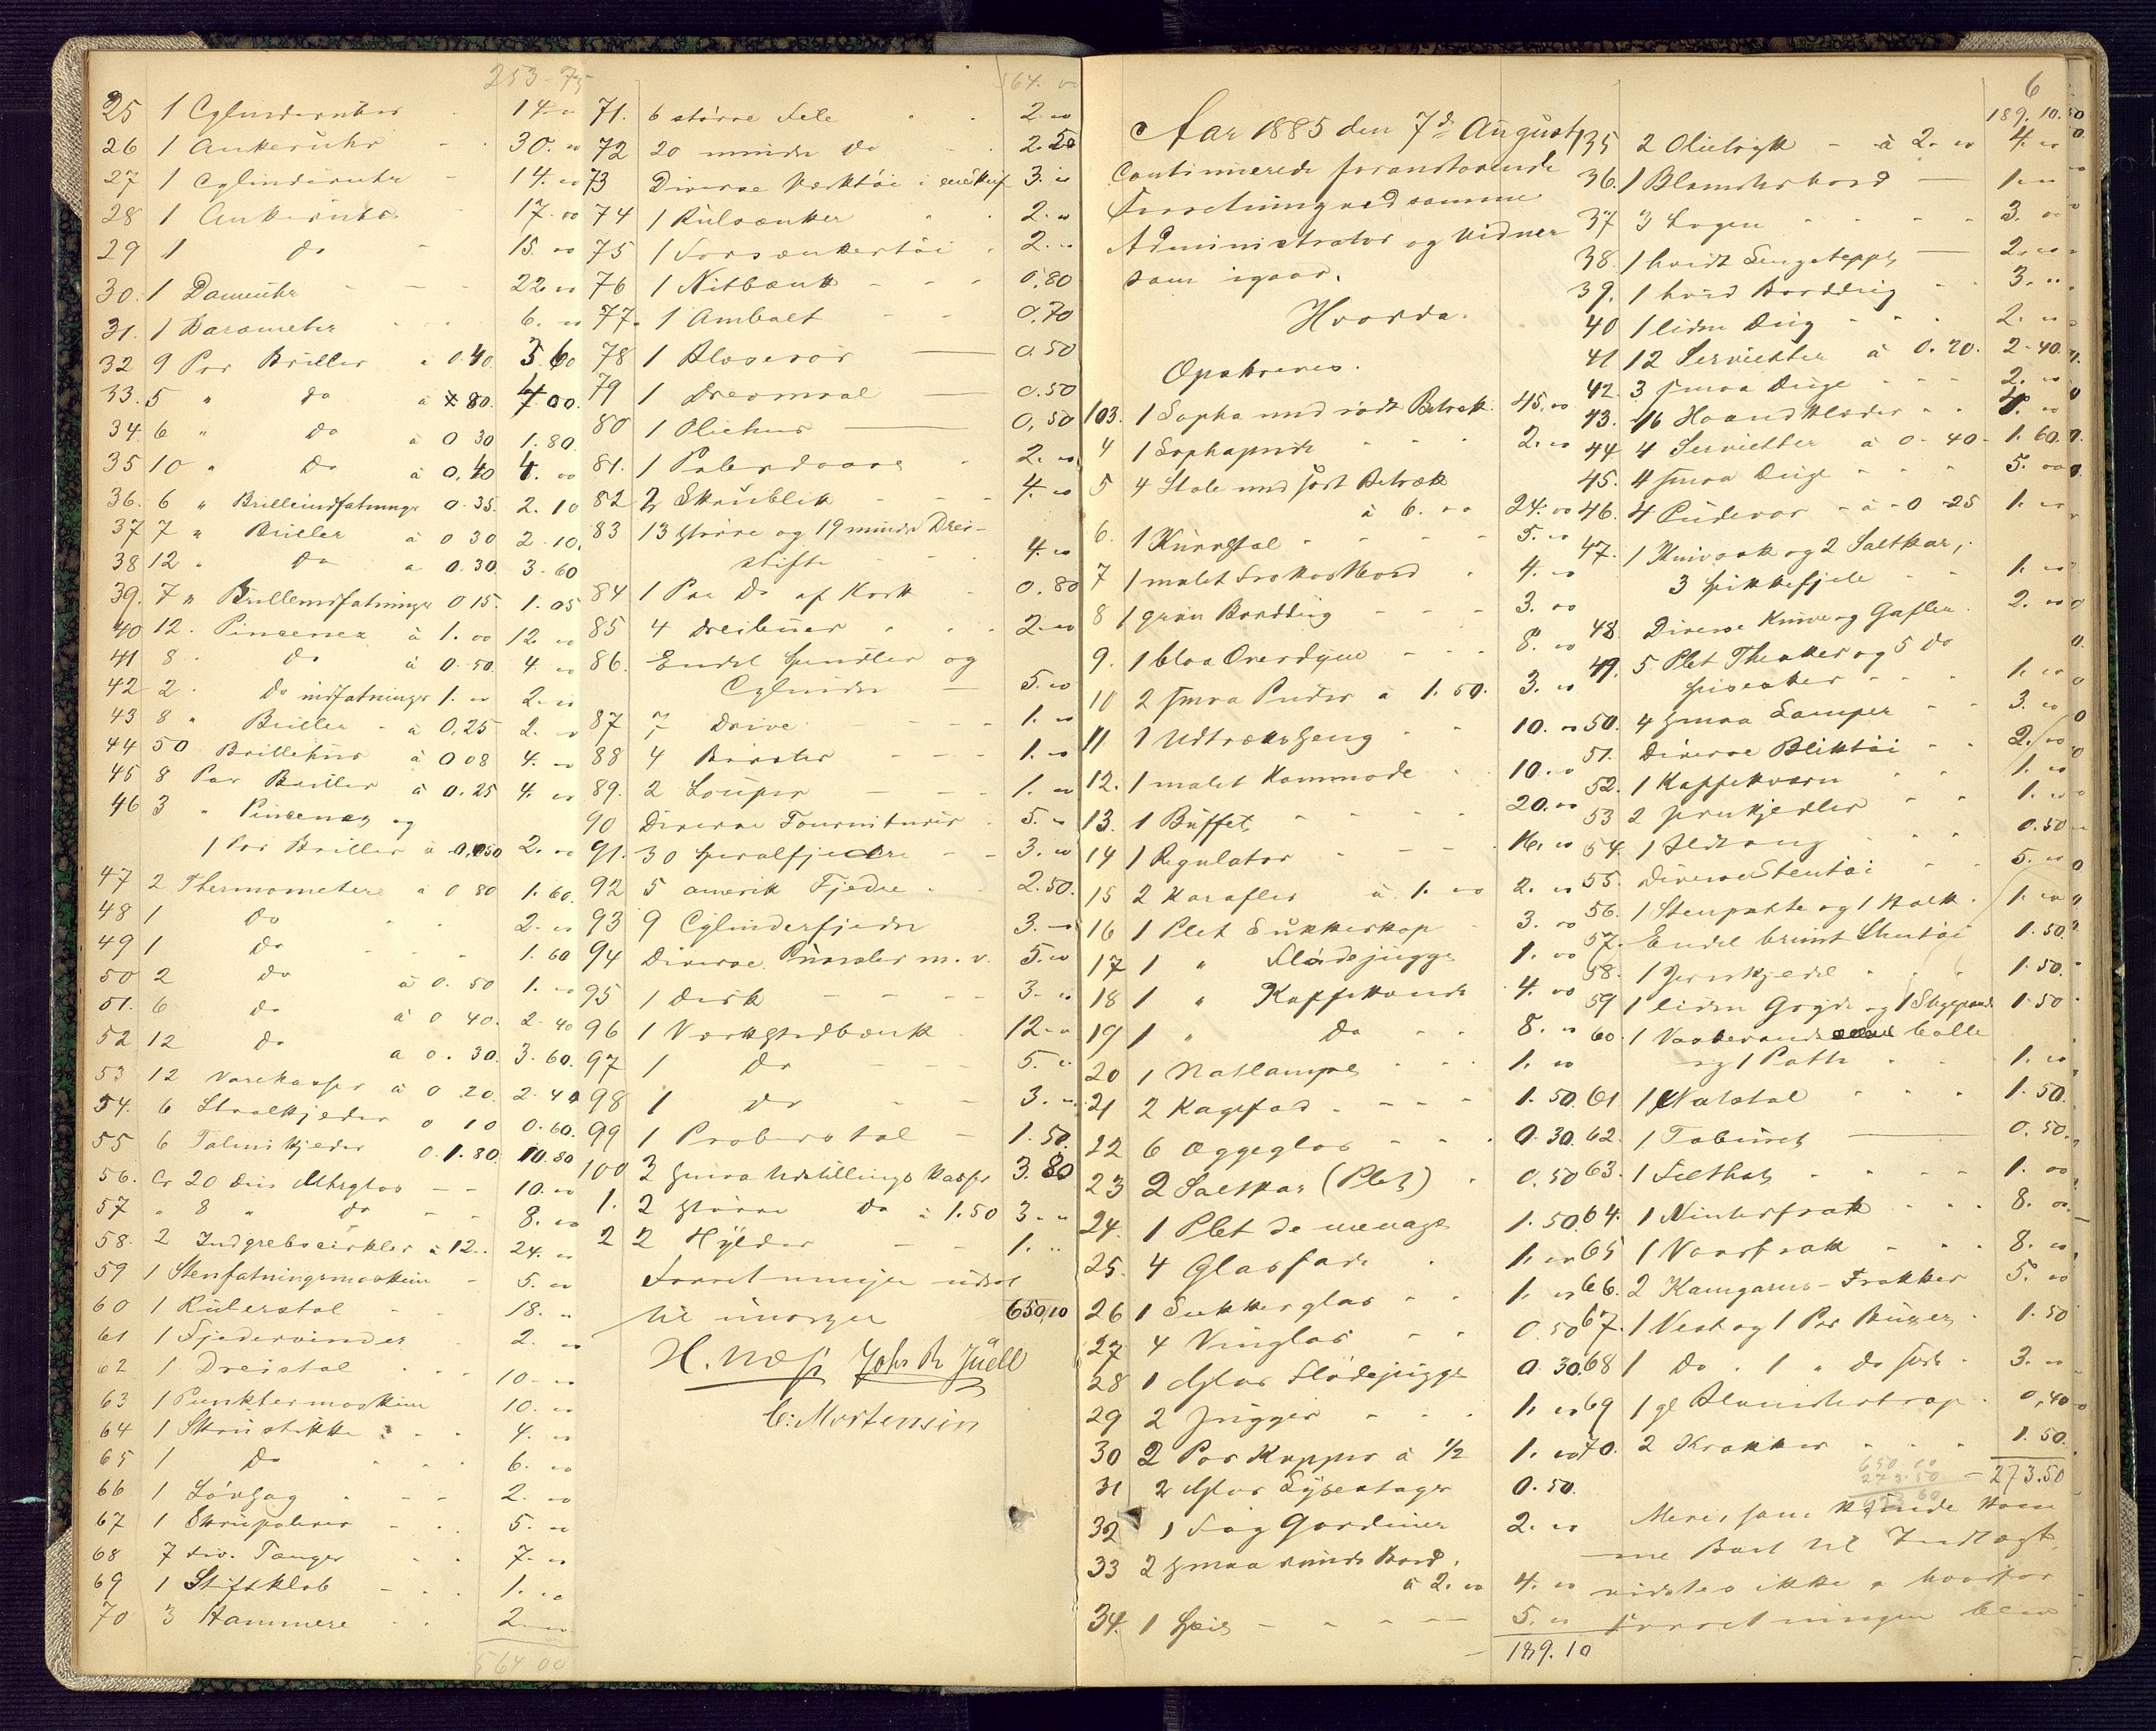 253-75
25 1 Cylinderuhr 14.00
26 1 Ankeruhr 30.00
27 1 Cylinderuhr 14.00
28 1 Ankeruhr 17.00
29 1 do 15.00
30. 1 Dameuhr 22.00
31. 1 Barometer 6.00
32 9 Par Briller à 0.40 3.60
33. 5 " do à 80. 4.00
34. 6 " do à 0 30 1.80
35 10 " do à 0,40 4.00
36. 6 " Brilleindfatninger 0.35. 2.10
37 7 " Briller à 0 30 2.10
38 12 " do a 0.30. 3.60
39. 7 " Brilleindfatninger 0 15. 1.05
40 12. Pincenez à 1.00 12.00
41 8. do à 0.50. 4.00
42 2. do indfatninger 1.00 2.00
43 8 " Briller - à 0,25 2.00
44 50 Brillehus à 0 08 4.00
45 8 Par Briller à 0.25 4.00
46 3 " Pincenez og
1 Par Briller à 0,50 2.00
47 2 Thermometere a 0 80 1.60.
48 1 do 2.00
49 1 do 1.60
50 2 do à 0.50 1.00
51. 6 do à 0 40. 2.40
52 12 do a 0.30. 3.60.
53 12 Varekasser à 0 20. 2.40
54. 6 Staalkjeder 0 10 0.60.
55 6 Talmikjeder 0.1.80. 10.80
56. Cr 20 Dus Uhrglas 10.00
57 " 8 " do 8.00
58. 2 Indgrebscirkler à 12.. 24.00
59 1 Stenfatningsmaskine 5.00
60 1 Rulerstol 18...
61 1 Fjedervinder 2.00
62 1 Dreistol 10.00
63 1 Punktermaskine 10.00
64 1 Skrustikke 4.00
65 1 Do 6.00
66 1 Løvsag 2.00
67 1 Skrupolerer 5.00
68 7 div. Tænger 7.00
69 1 Stiftklob 1.00
70 3 Hammere 2.00
564 00
564.00
71. 6 større File 2.00
72 20 mindre do 2.50
73 Diverse Verktøi i enskuf 3.00
74 1 Rulsænker 2.00
75 1 Forsænkertøi 2...
76 1 Nitbænk 0,80
77. 1 Ambolt 0.70
78 1 Blæserør 0.50
79 1 Dreomaal 0.50
80 1 Oliehus 0,50
81. 1 2.00
82 2 Skrublik 4.00
83 13 større og 19 mindre Drei-
stifte 4.00
84 1 Par Do af Kork 0.80
85 4 Dreibuer 2.00
86. Endel Spindler og
Cylindre 5.00
87 7 Drive 1.00
88 4 Børster 1.00
89. 2 Louper 1.00
90 Diverse Fourniturer 5.00
91. 30 Spiralfjedre 3.00
92 5 amerik Fjedre 2.50.
93 9 Cylinderfjedre 3.00
94 Diverse m. v. 5.00
95 1 Disk 3.00
96 1 Værkstedbænk 12.00
97 1 do 5...
98 1 do 3...
99 1 Proberstol 1.50.
100 2 smaa Udstillings Kasser 3.80
1. 2 større do à 1.50 3...
2 2 Hylder 1...
Forretningen udsat
til imorgen 650,10
H. Næss Johs R Juell
C. Mortensen
6
Aar 1885 den 7de August
Continuerede foranstaaende
Forretning ved samme
Administrator og Vidner
som igaar.
Hvorda.
Opskreves.
103. 1 Sopha med rødt Betræk 45.00
4 1 Sophapude 2.00
5 4 Stole med sort Betræk
à 6.00 24.00
6. 1 Kurvstol 5.00
7 1 malet Frokostbord 4.00
8 1 grøn Borddug 3.00
9. 1 blaa Overdyne 8.00
10 2 smaa Puder à 1.50. 3.00
11 1 Udtræksseng 10.00
12. 1 malet Kommode 10.00
13. 1 Buffet 20.00
14 1 Regulator 16.00
15 2 Karafler à 1.00 2.00
16 1 Plet Sukkerkop 3.00
17 1 " Flødejugge 1.00
18 1 " Kaffekande 4.00
19 1 " do 8.00
20 1 Natlampe 1.00
21 2 Kagefad 1.50
22 6 Æggeglas 0.30
23 2 Saltkar (Plet) 0.50
24. 1 Plet de menage 1.50
25. 4 Glasfade 1.00
26 1 Sukkerglas 1.00
27 4 Vinglas 0.50
28 1 Glas Flødejugge 0.30
29 2 Jugger 1.00
30 2 Par Kopper à 1/2 1.00
31 2 Glas Lysestager 0.50.
32 1 Fag Gardiner 2.00
33 2 smaa runde Bord.
à 2.00 4.00
34. 1 Speil 5.00
189.10
189.10
35 2 Olietryk à 2.00 4.00
36. 1 Blomsterbord 1.00
37 3 Lagen 3.00
38. 1 hvidt Sengeteppe 2.00
39. 1 hvid Borddug 3...
40 1 liden Dug 2.00
41 12 Servietter à 0.20. 2.40
42. 3 smaa Duge 2.00
43. 16 Haandklæder 4.00
44 4 Servietter à 0.40 1.60
45. 4 smaa Duge 5.00
46. 4 Pudevar à 0 25 1.00
47. 1 Knivsak og 2 Saltkar,
3 Spikkefjele 1.00
48. Diverse Knive og Gafler 2.00
49. 5 Plet Theskeer og 5 do
Spiseskeer 1.00
50. 4 smaa Lamper 3.00
51. Diverse Bliktøi 2.00
52. 1 Kaffekværn 1.00
53 2 Jernkjedler 1.00
54. 1 Ildtang 0.50
55. Diverse Stentøi 5.00
56. 1 Stenpotte og 1 Kolk 1.00
57. Endel brunt Stentøi 1.50
58. 1 Jernkjedel 1.50
59 1 liden Gryde og 1 Stegepande 1.50
60. 1 Vandspand Balle
og 1 Potte 1.00
61 1 Natstol 1.50.
62. 1 Taburet 0.50.
63. 1 Filthat 1.00
64. 1 Vinterfrak 8.00
65 1 Vaarfrak 8.00
66. 2 Kamgarns-Frakker 5.00
67. 1 Vest og 1 Par Buxer 1.50
68 1 Do. 1 " Do sorte 3.00
69 1 gl Blomstertrap 0,40
70. 2 Krakker 1.50.
650.10
273.50
- 273.50
Mere, som kunde kom
me Boet til Indtægt,
vidstes ikke, hvorfor
Forretningen blev